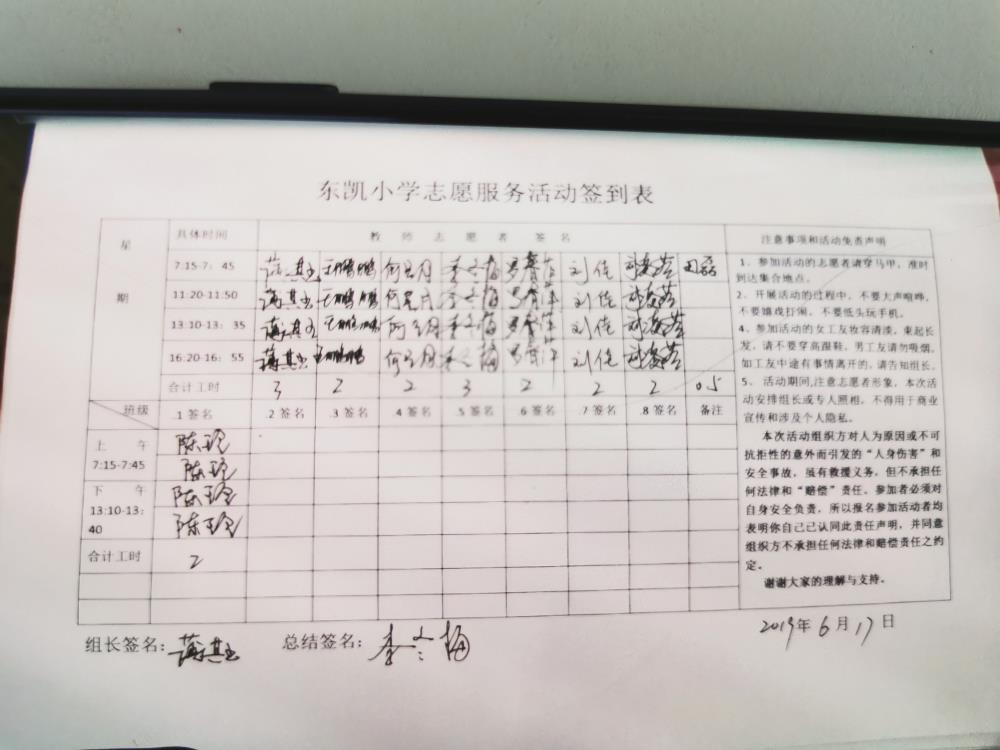 东凯小学志愿服务活动签到表
星期 具体时间 教师志愿者签名 注意事项和活动免责声明
7:15-7:45 蒲其玉 王鹏鹏 李冬梅 刘佳 田磊
11:20-11:50 蒲其玉 王鹏鹏 李冬梅 刘佳
13:10-13:35 蒲其玉 王鹏鹏 李冬梅 刘佳
16:20-16:55 蒲其玉 王鹏鹏 李冬梅 刘佳
合计工时 3 2 2 3 2 2 2 0.5
班级 .1 签名 .2 签名 .3 签名 4 签名 .5 签名 6 签名 .7 签名 .8 签名 备注
上午 陈玲
7:15-7:45 陈玲
下午 陈玲
13:10-13:40 陈玲
合计工时 2
1、参加活动的志愿者请穿马甲，准时
到达集合地点。
2、开展活动的过程中，不要大声喧哗，
不要嬉戏打闹、不要低头玩手机。
4、参加活动的女工友妆容清淡，束起长
发，请不要穿高跟鞋，男工友请勿吸烟。
如工友中途有事情离开的，请告知组长。
5、活动期间,注意志愿者形象，本次活
动安排组长或专人照相，不得用于商业
宣传和涉及个人隐私。
本次活动组织方对人为原因或不可
抗拒性的意外而引发的“人身伤害”和
安全事故，虽有救援义务，但不承担任
何法律和“赔偿”责任。参加者必须对
自身安全负责，所以报名参加活动者均
表明你自己已认同此责任声明，并同意
组织方不承担任何法律和赔偿责任之约
定。
谢谢大家的理解与支持。
组长签名：蒲其玉 总结签名：李冬梅 2019年6月17日